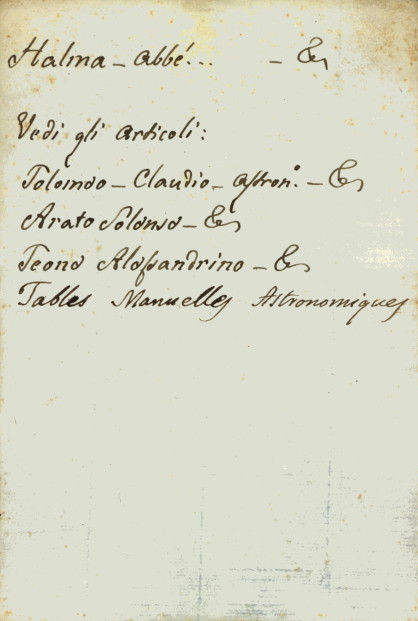 Halma – Abbé... – &
Vedi gli articoli:
Tolomeo – Claudio – Astron.º – &
Arato Solense – &
Teone Alessandrino – &
Tables Manuelles Astronomiques